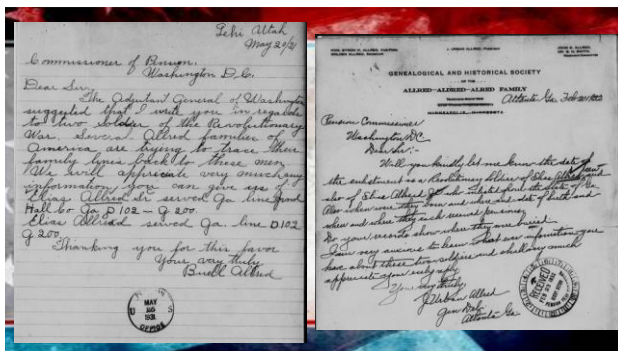 Lehi Utah
May 20/31
Commissioner of Pension.
Washington D.C.
Dear Sir:
The Adjutant General of Washington
suggested that I write you in regards
to two soldier of the Revolutionary
War. Several Allred families of
America are trying to trace their
family lines back to these men
We will appreciate very much any
information you can give us of
Elias Allred Sr served Ga. line
Hall Co Ga D 102 - G 200.
Elias Allred served Ga. line D 102
G 200.
Thanking you for this favor
Your very truly
Buell Allred
MAY
1931
U S
OFFICE
GENEALOGICAL AND HISTORICAL SOCIETY
OF THE
ALLRED-ALDRED-ALRED FAMILY
Atlanta Ga. Feb
Pension Commissioner
Washington D.C.
Dear Sir:-
Will you kindly let me know the date of
the enlistment as a Revolutionary Soldier of Elias Allred
also of Elias Allred Jr who enlisted from the State of Ga
Also when were they born and where and date of death and
when and where they each
Do your records show where they are buried
I am very anxious to learn what ever information you
have about these two soldiers and shall very much
appreciate your early reply
Yours very truly,
J Urban Allred
Atlanta Ga
RECEIVED